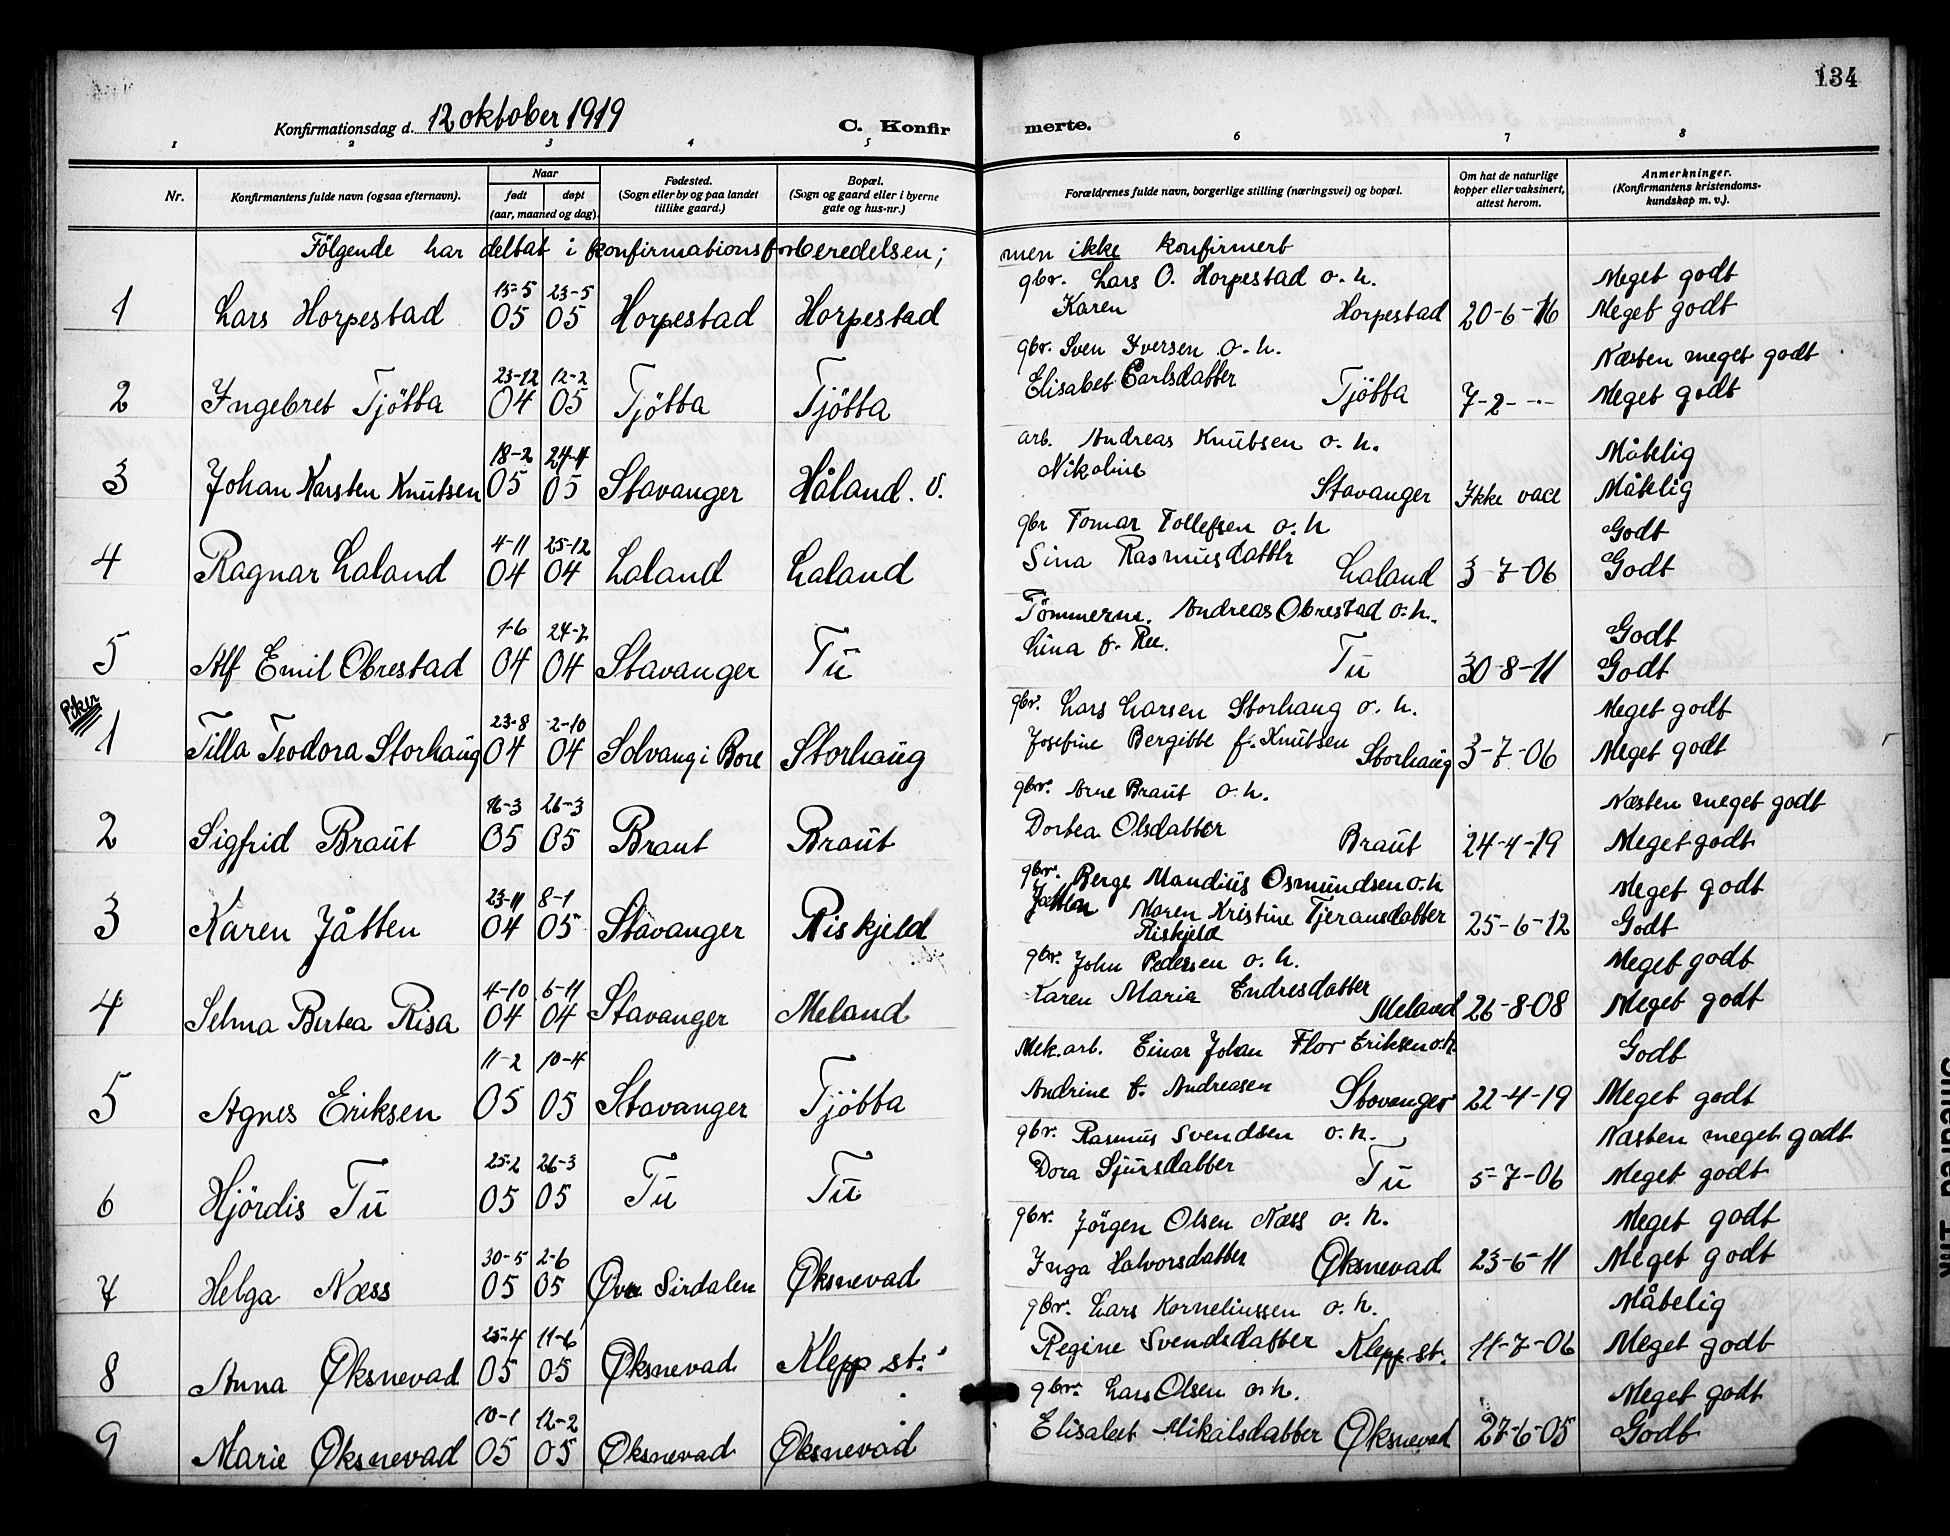 134
Konfirmationsdag d. 12 oktober 1919
C. Konfir merte.
1 2 3 4 5 6 7 8
Nr. Konfirmantens fulde navn (ogsaa efternavn). Naar født døpt (aar, maaned og dag). Fødested. (Sogn eller by og paa landet tillike gaard.) Bopæl. (Sogn og gaard eller i byerne gate og hus-nr.) Forældrenes fulde navn, borgerlige stilling (næringsvei) og bopæl. Om hat de naturlige kopper eller vaksinert, attest herom. Anmerkninger. (Konfirmantens kristendoms-kundskap m. v.).
Fölgende har deltat i konfirmationsforberedelsen; men ikke konfirmert
gbr. Lars O. Horpestad o. h. Meget godt
1 Lars Horpestad 15-5 05 23-5 05 Horpestad Horpestad Karen Horpestad 20-6-16 Meget godt
gbr. Sven Iversen o. h. Næsten meget godt
2 Ingebret Tjötta 23-12 04 12-2 05 Tjötta Tjötta Elisabet Carlsdatter Tjötta 7-2- -·- Meget godt
arb. Andreas Knutsen o. h. Måtelig
3 Johan Karsten Knutsen 18-2 05 24-4 05 Stavanger Håland. V. Nikoline Stavanger Ikke vacc Måtelig
gbr Tomar Tollefsen o. h Godt
4 Ragnar Laland 4-11 04 25-12 04 Laland Laland Sina Rasmusdatter Laland 3-7-06 Godt
Tömmerm. Andreas Obrestad o. h. Godt
5 Alf Emil Obrestad 1-6 04 24-7 04 Stavanger Tu Lina f. Ree. Tu 30-8-11 Godt
Piker
gbr. Lars Larsen Storhaug o. h. Meget godt
1 Tilla Teodora Storhaug 23-8 04 2-10 04 Solvang i Bore Storhaug Josefine Bergitte f. Knutsen Storhaug 3-7-06 Meget godt
gbr. Arne Braut o. h. Næsten meget godt
2 Sigfrid Braut 16-3 05 26-3 05 Braut Braut Dortea Olsdatter Braut 24-4-19 Meget godt
gbr. Berge Mandius Osmundsen o. h Meget godt
3 Karen Jåtten 23-11 04 8-1 05 Stavanger Riskjeld Jåtten Maren Kristine Tjeransdatter Riskjeld 25-6-12 Godt
gbr. John Pedersen o. h. Meget godt
4 Selma Bertea Risa 4-10 04 6-11 04 Stavanger Meland Karen Maria Endresdatter Meland 26-8-08 Meget godt
Mek. arb. Einar Johan Flor Eriksen o. h. Godt
5 Agnes Eriksen 11-2 05 10-4 05 Stavanger Tjötta Andrine f. Andreasen Stavanger 22-4-19 Meget godt
gbr. Rasmus Svendsen o. h. Næsten meget godt
6 Hjördis Tu 25-2 05 26-3 05 Tu Tu Dora Sjursdatter Tu 5-7-06 Meget godt
gbr. Jörgen Olsen Næss o. h. Meget godt
7 Helga Næss 30-5 05 2-6 05 Øvre Sirdalen Øksnevad Inga Halvorsdatter Øksnevad 23-6-11 Meget godt
gbr. Lars Korneliussen o. h. Måtelig
8 Anna Øksnevad 25-4 05 11-6 05 Øksnevad Klepp st. Regine Svendsdatter Klepp st. 11-7-06 Meget godt
gbr. Lars Olsen o. h. Meget godt
9 Marie Øksnevad 10-1 05 12-2 05 Øksnevad Øksnevad Elisabet Mikalsdatter Øksnevad 27-6-05 Godt